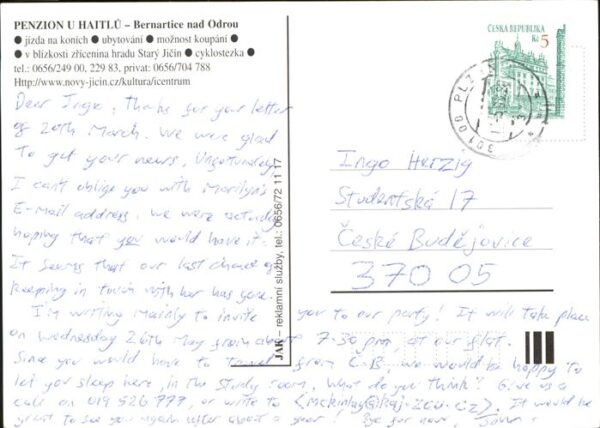 PENZION U HAITLŮ – Bernartice nad Odrou
● jízda na koních ● ubytování ● možnost koupání ●
● v blízkosti zřícenina hradu Starý Jičín ● cyklostezka ●
tel.: 0656/249 00, 229 83, privat: 0656/704 788
Http://www.novy-jicin.cz/kultura/icentrum
Dear Ingo, Thanks for your letter
of 20th March. We were glad
to get your news. Unfortunately
I can't oblige you with Marilyn's
E-Mail address. We were actually
hoping that you would have it.
It seems that our last chance of
keeping in touch with her has gone.
I'm writing mainly to invite you to our party! It will take place
on Wednesday 26th May from about 7-30 pm, at our flat.
Since you would have to travel from C-B, we would be happy to
let you sleep here, in the study room. What do you think? Give us a
call on 019 526777, or write to <mckinlay@kaj.zcu.cz>. It would be
great to see you again after about a year! Bye for now, John.
JAK – reklamní služby, tel.: 0656/72 11 17
ČESKÁ REPUBLIKA
Kč 5
301 00 PLZEŇ
Ingo Herzig
Studentská 17
České Budějovice
370 05